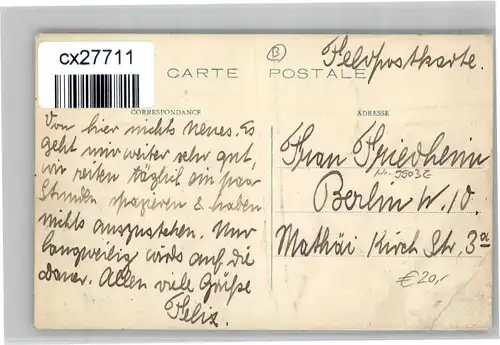 cx27711
B
Feldpostkarte.
CARTE POSTALE
CORRESPONDANCE
ADRESSE
Von hier nichts neues. Es
geht mir weiter sehr gut,
wir reiten täglich ein paar
Stunden spazieren & haben
nichts auszustehen. Nur
langweilig wirds auf die
Dauer. Allen viele Grüße
Felix.
Frau Friedheim
Berlin W. 10.
Mathäi Kirch Str. 3a
€20,-